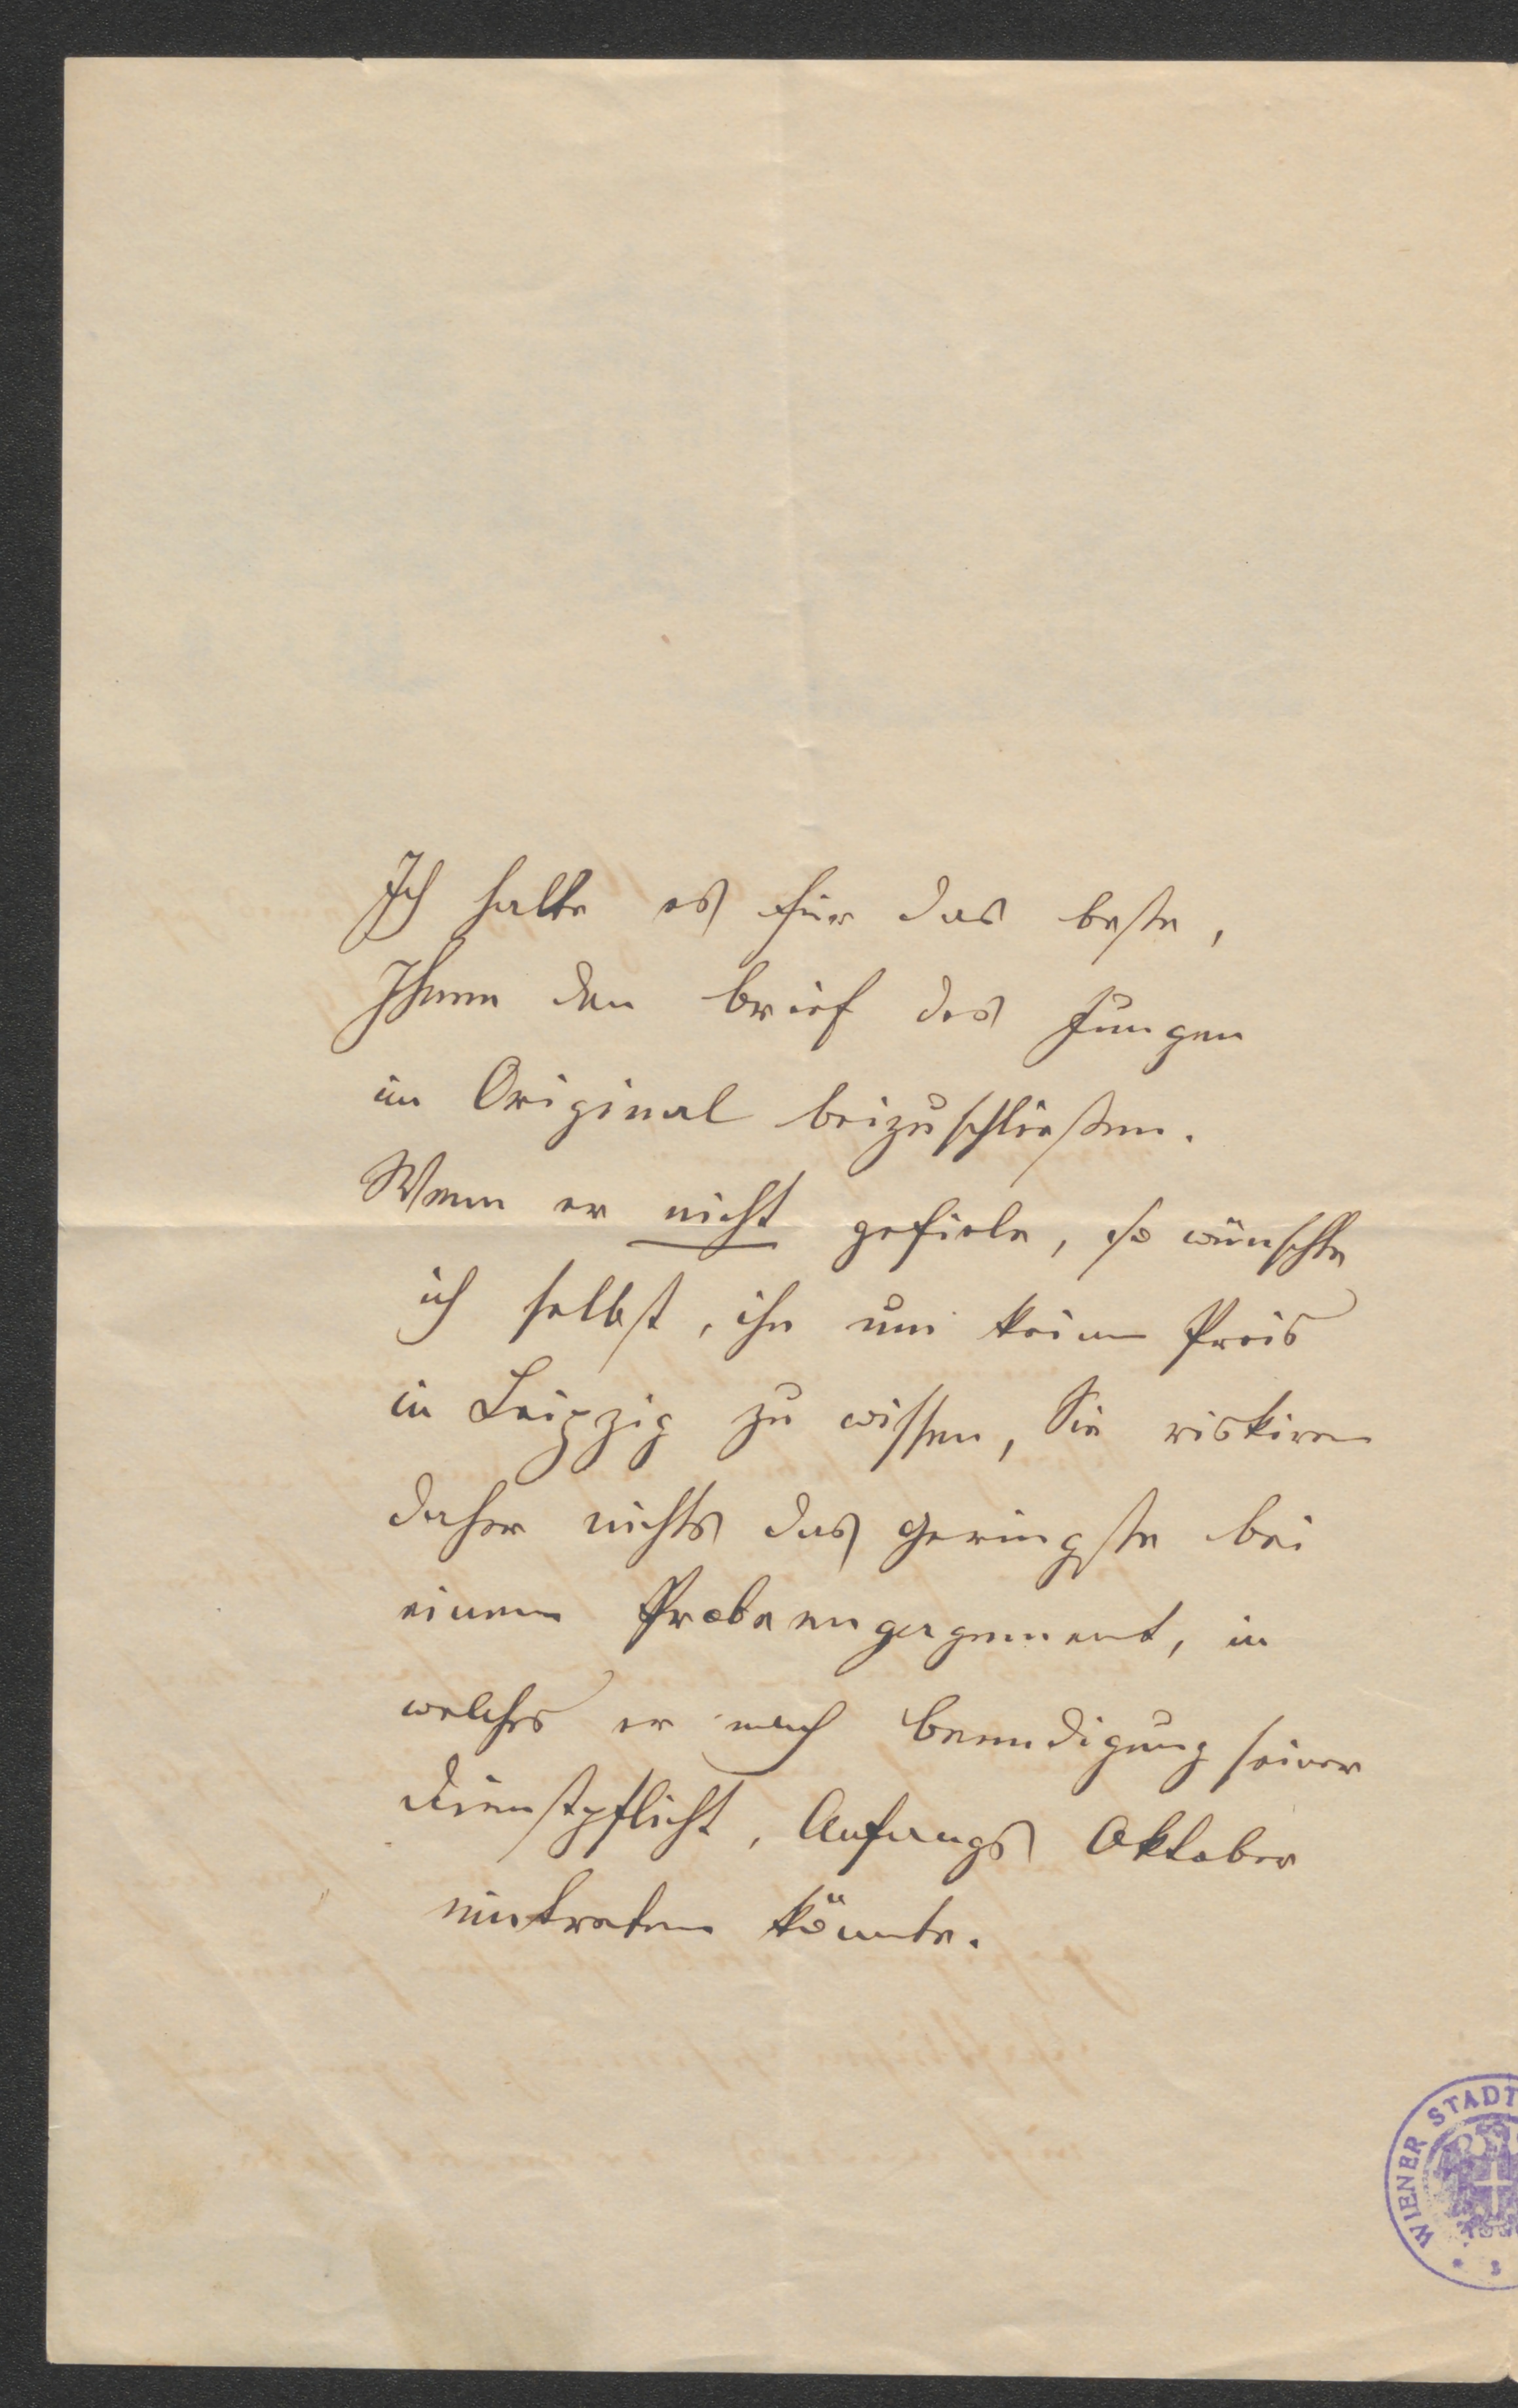 Ich halte es für das beste,
Ihnen den brief des Jungen
im Original beizuschließen.
Wenn er nicht gefiele, so wünschte
ich selbst, ihn um keinen Preis
in Leipzig zu wissen, Sie riskiren
daher nichts das Geringste bei
einem Probeengagement, in
welches er nach beendigung seiner
Dienstpflicht, Anfangs Oktober
eintreten könnte.
WIENER STADT